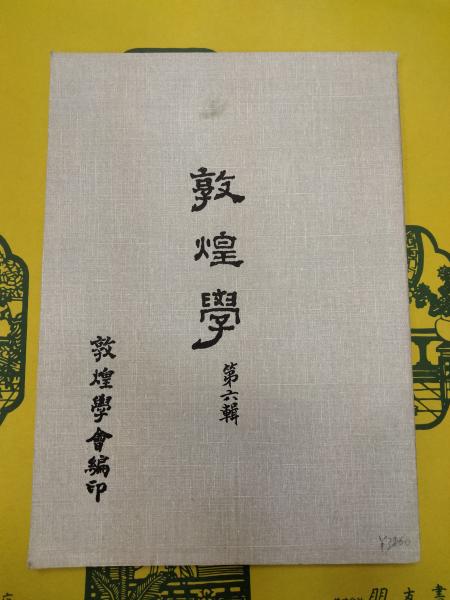 敦煌學
第六輯
敦煌學會編印
朋友書